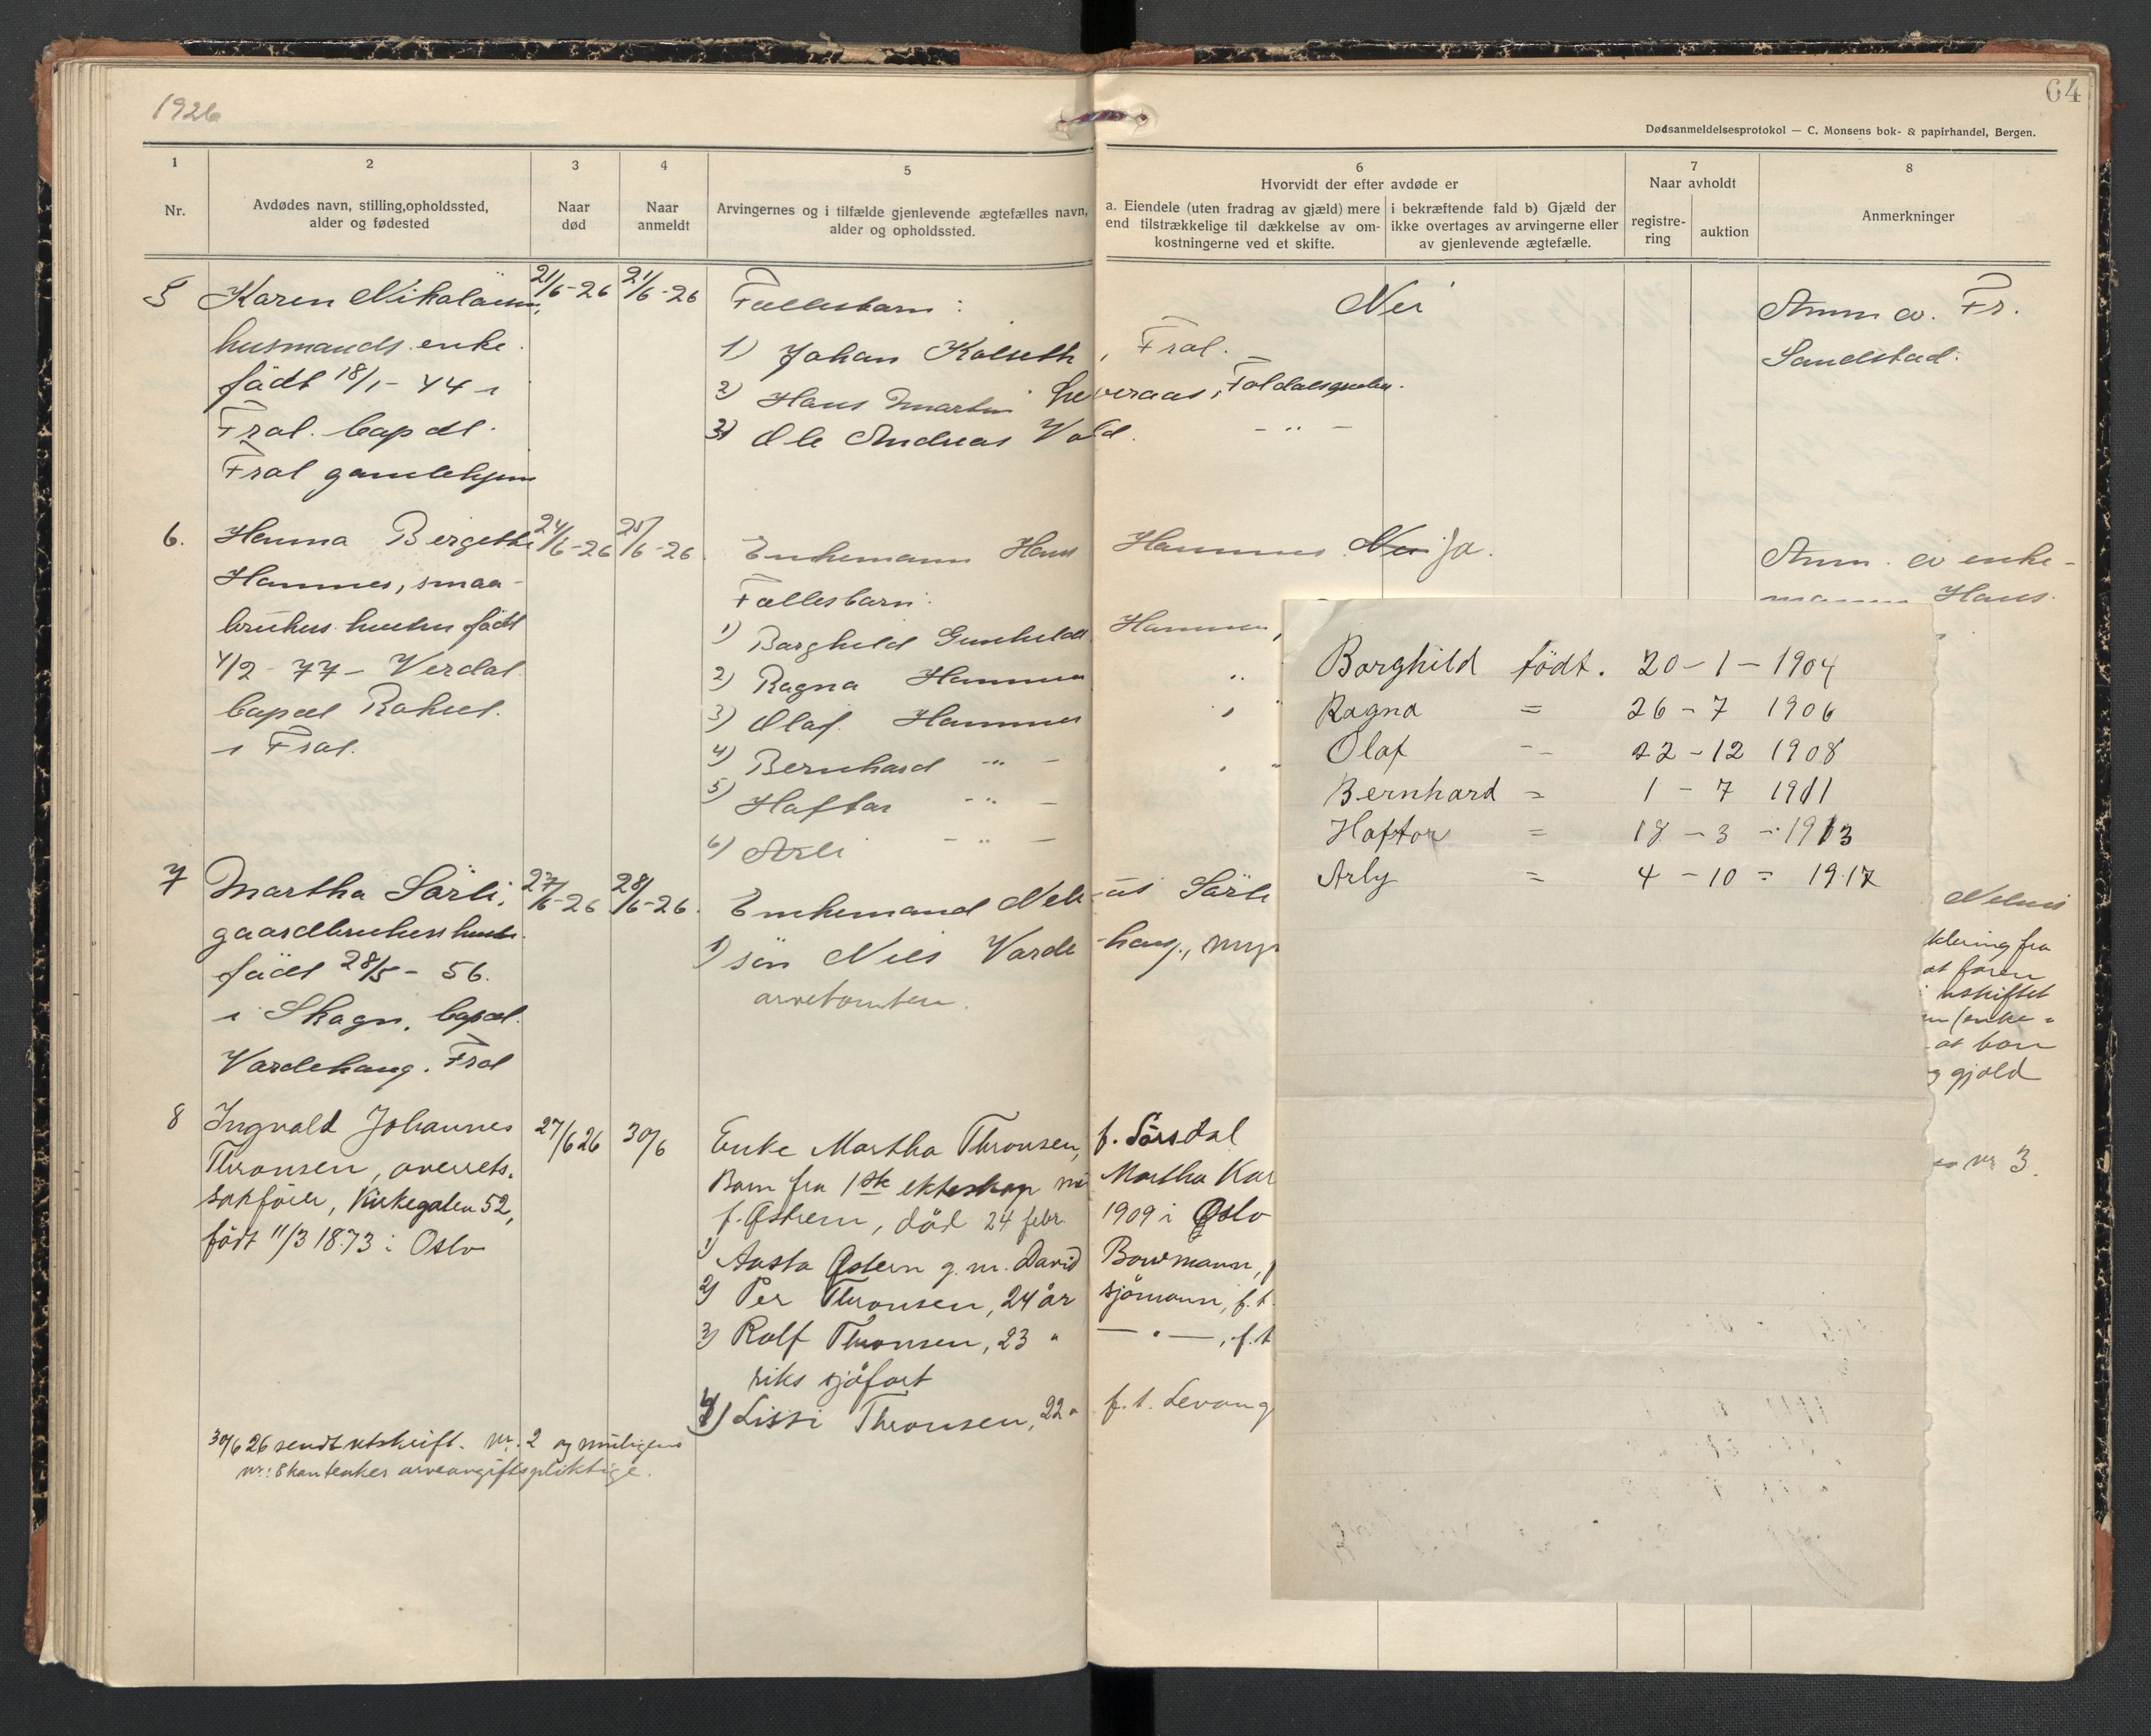 1926
64
Dødsanmeldelsesprotokol — C. Monsens bok- & papirhandel, Bergen.
1
2
3
4
5
6
7
8
Nr.
Avdødes navn, stilling, opholdssted,
alder og fødested
Naar
død
Naar
anmeldt
Arvingernes og i tilfælde gjenlevende ægtefælles navn,
alder og opholdssted.
Hvorvidt der efter avdøde er
a. Eiendele (uten fradrag av gjæld) mere
end tilstrækkelige til dækkelse av om-
kostningerne ved et skifte.
i bekræftende fald b) Gjæld der
ikke overtages av arvingerne eller
av gjenlevende ægtefælle.
Naar avholdt
registre-
ring
auktion
Anmerkninger
5
Karen Nikolaisen,
husmands enke.
födt 18/1 - 44 i
Frol. bopæl.
Frol gamlehjem
21/6-26
21/6-26
Fællesbarn:
1) Johan Kolseth, Frol.
2) Hans Martin
3) Ole Andreas Vold. - " -
Nei
Anm av. Fr.
Sandstad.
6.
Hanna Bergette
Hammer, smaa-
brukers hustru född
4/2 - 77 - Verdal.
bopæl
i Frol.
24/6-26
25/6-26.
Enkemann Hans Hammer Nei Ja.
Fællesbarn:
1) Borghild Gunhilde Hammer,
2) Ragna Hammer "
3) Olaf. Hammer "
4) Bernhard - " -
5) Haftor - " -
6) Arli - " -
Anm. av enke-
mann Hans.
Borghild födt. 20 - 1 - 1904
Ragna = 26 - 7 1906
Olaf -- 22 - 12 1908
Bernhard = 1 - 7 1911
Haftor = 18 - 3 - 1913
Arly = 4 - 10 = 1917
7
Martha Sörli,
gaardbrukers hustr.
födt 28/5 - 56.
i Skogn, bopæl.
Vardehaug. Frol
27/6-26
28/6-26.
Enkemand Nelius Sörli
1) sön Nils Vardehaug.,
arvetomten.
Nelius
klering fra
at faren
uskiftet
at han
gjæld
8
Ingvald Johannes
Thronsen, overrets-
sakförer, Kirkegaten 52,
födt 11/3 1873 i Oslo
27/6 26
30/6
Enke Martha Thronsen, f. Sörsdal
Barn fra 1ste ekteskap m Martha Kar
f. Østrem, död 24 febr. 1909 i Oslo
1) Aasta g. m. David Bowmann,
2) Per Thronsen, 24 år sjömann, f. t.
3) Rolf Thronsen, 23 " — " —, f. t
riks sjöfart
4) Lissi Thronsen, 22 " f. t. Levang
nr 3.
30/6 26 sendt utskrift. Nr. 2 og muligens
nr: 8 kan tenkes arveavgiftspliktige.